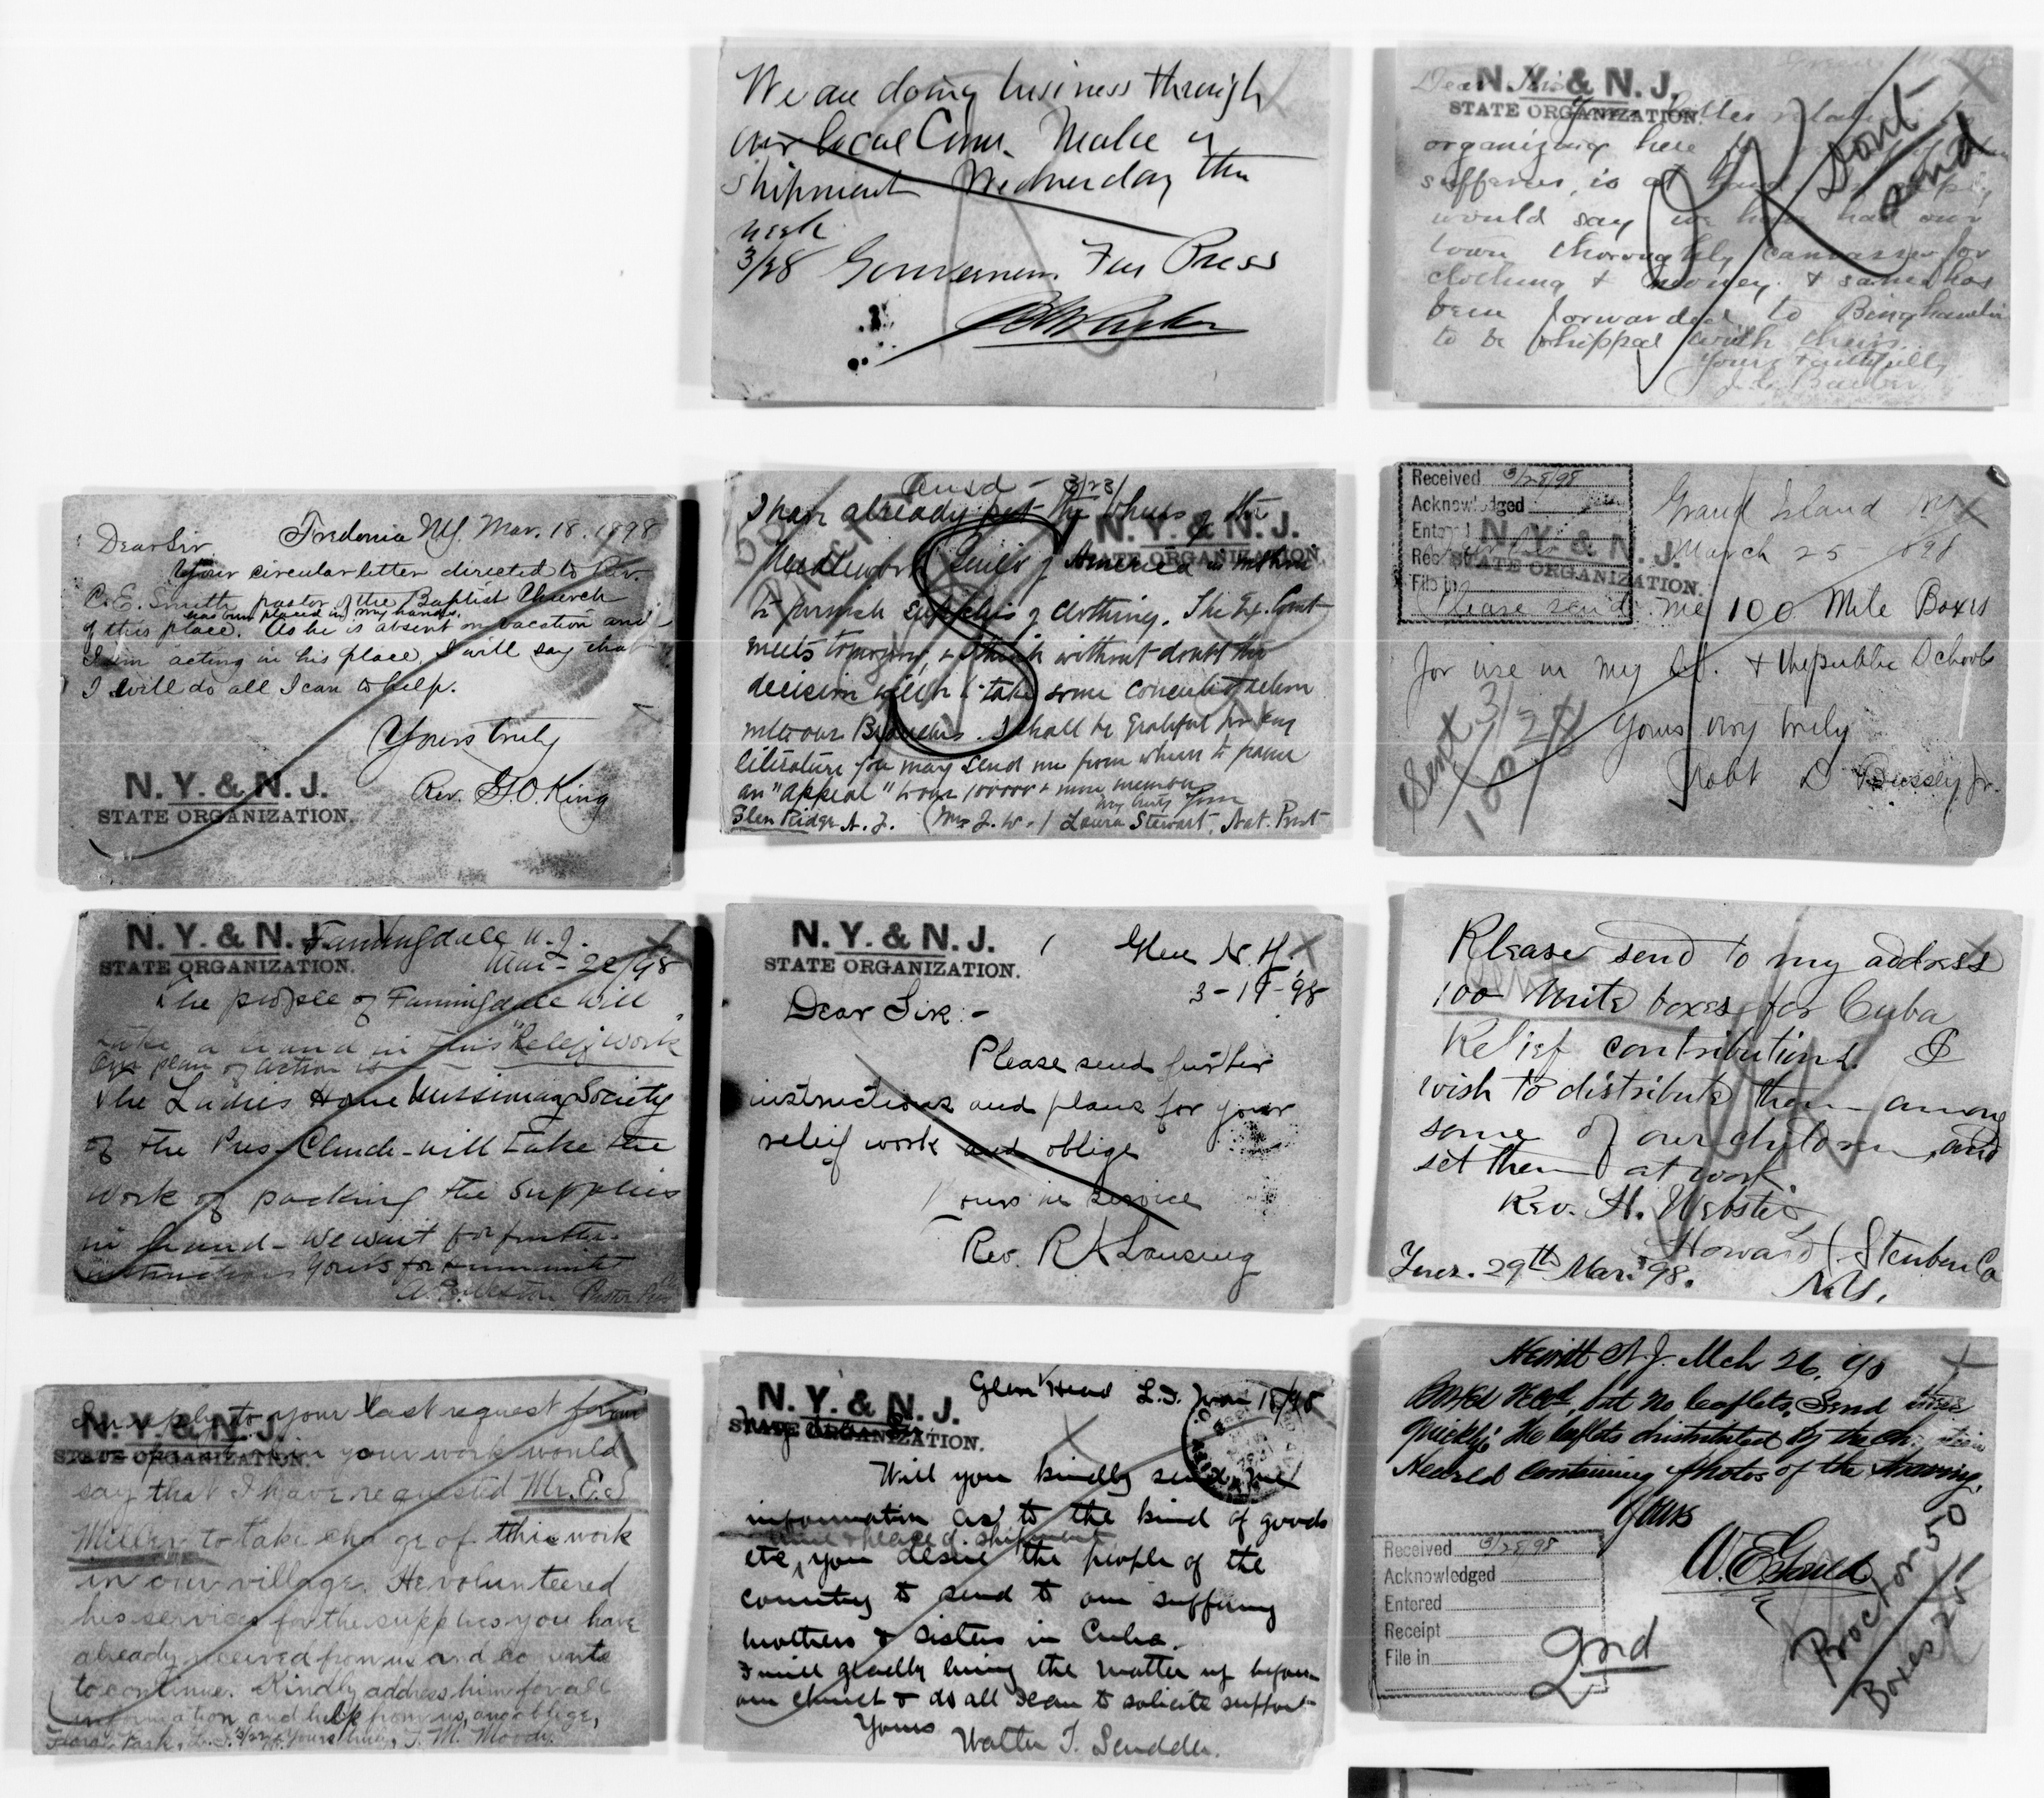 We are doing business through
our local Com. Make a
shipment Wednesday this
week
3/28 Free Press
N. Y. & N. J.
STATE ORGANIZATION.
Dear
letter
organizing here
sufferers, is at hand
would say we have had our
town thoroughly canvassed for
clothing & money. & same has
been forwarded to Binghamton
to be shipped with theirs.
Yours faithfully
OK Dont
send
Fredonia N.Y. Mar. 18. 1898
Dear Sir
Your circular letter directed to Rev.
C. E. Smith pastor of the Baptist Church
has been placed in my hands.
of this place. As he is absent on vacation and
I am acting in his place, I will say that
I will do all I can to help.
Yours truly
Rev. G. O. King
N. Y. & N. J.
STATE ORGANIZATION.
Ansd - 3/23/
I have already put the wheels of the
N. Y. & N. J.
STATE ORGANIZATION.
Needlework Guild of America in motion
to furnish supplies of clothing. The Ex. Com't
meets tomorrow, & I think without doubt the
decision will be to take some concerted action
with our Branches. I shall be grateful for any
literature you may send me from whom to frame
an "appeal" to our 100000 & more members
Very truly yours
Glen Ridge N. J. (Mrs J. W.) Laura Stewart, Nat. Prest
Received 3/28/98
Acknowledged
Entered
Receipt
File in
N. Y. & N. J.
STATE ORGANIZATION.
Grand Island NY
March 25 1898
Please send me 100 Mite Boxes
for use in my S.S. & the public Schools
Yours very truly
Robt D Bussey, Jr.
Sent 3/28
100
N. Y. & N. J.
STATE ORGANIZATION.
Farmingdale N. J.
Mar - 22/98
The people of Farmingdale will
take a hand in this "Relief work"
Our plan of action is
The Ladies Home Missionary Society
of the Pres- Church - will take the
work of packing the supplies
in hand - we wait for further
instructions Yours for humanity
Pastor Pres
N. Y. & N. J.
STATE ORGANIZATION.
Glen N. Y.
98
Dear Sir:-
Please send further
instructions and plans for your
relief work and oblige
Yours in service
Rev. R A Lansing
Please send to my address
100 Mite boxes for Cuba
Relief contributions. I
wish to distribute them among
some of our children, and
set them at work
Rev. H. Webster,
Howard (Steuben Co
Tues. 29th Mar. '98. N.Y.
N. Y. & N. J.
STATE ORGANIZATION.
In reply to your last request for our
your work would
say that I have requested Mr. E. S
Miller to take charge of this work
in our village. He volunteered
his services for the supplies you have
already received from us and consents
to continue. Kindly address him for all
information and help from us, and oblige,
Floral Park, L. I. 3/22 Yours truly, T. M. Moody.
N. Y. & N. J.
STATE ORGANIZATION.
Glen Head L. I. Mar 18/98
My dear Sir
Will you kindly send me
information as to the kind of goods
time & place of shipment
etc, you desire the people of the
country to send to our suffering
brothers & sisters in Cuba.
I will gladly bring the matter up before
our church & do all I can to solicite support
Yours Walter T. Scudder.
Hewitt N. J. Mch 26, 98
Boxes Recd, but no leaflets. Send these
quickly; the leaflets distributed by the Christian
Herald containing photos of the starving.
Yours
W. E. Gould
Received 3/28/98
Acknowledged
Entered
Receipt
File in
2nd
Proctor 50
Boxes 25